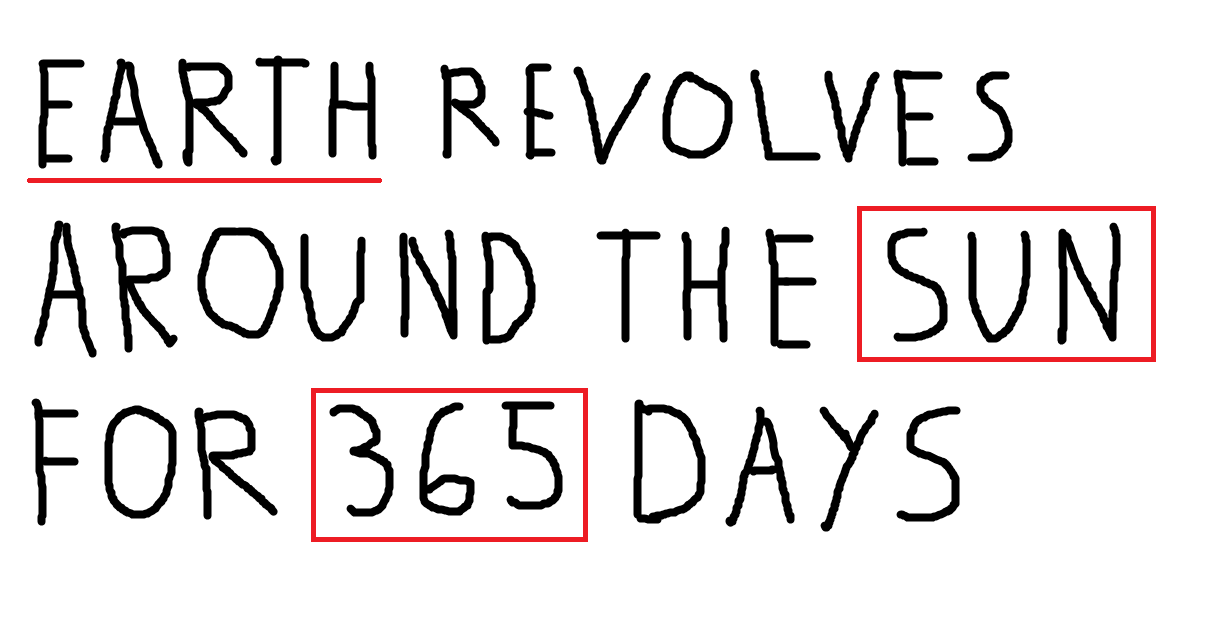 EARTH REVOLVES
AROUND THE SUN
FOR 365 DAYS